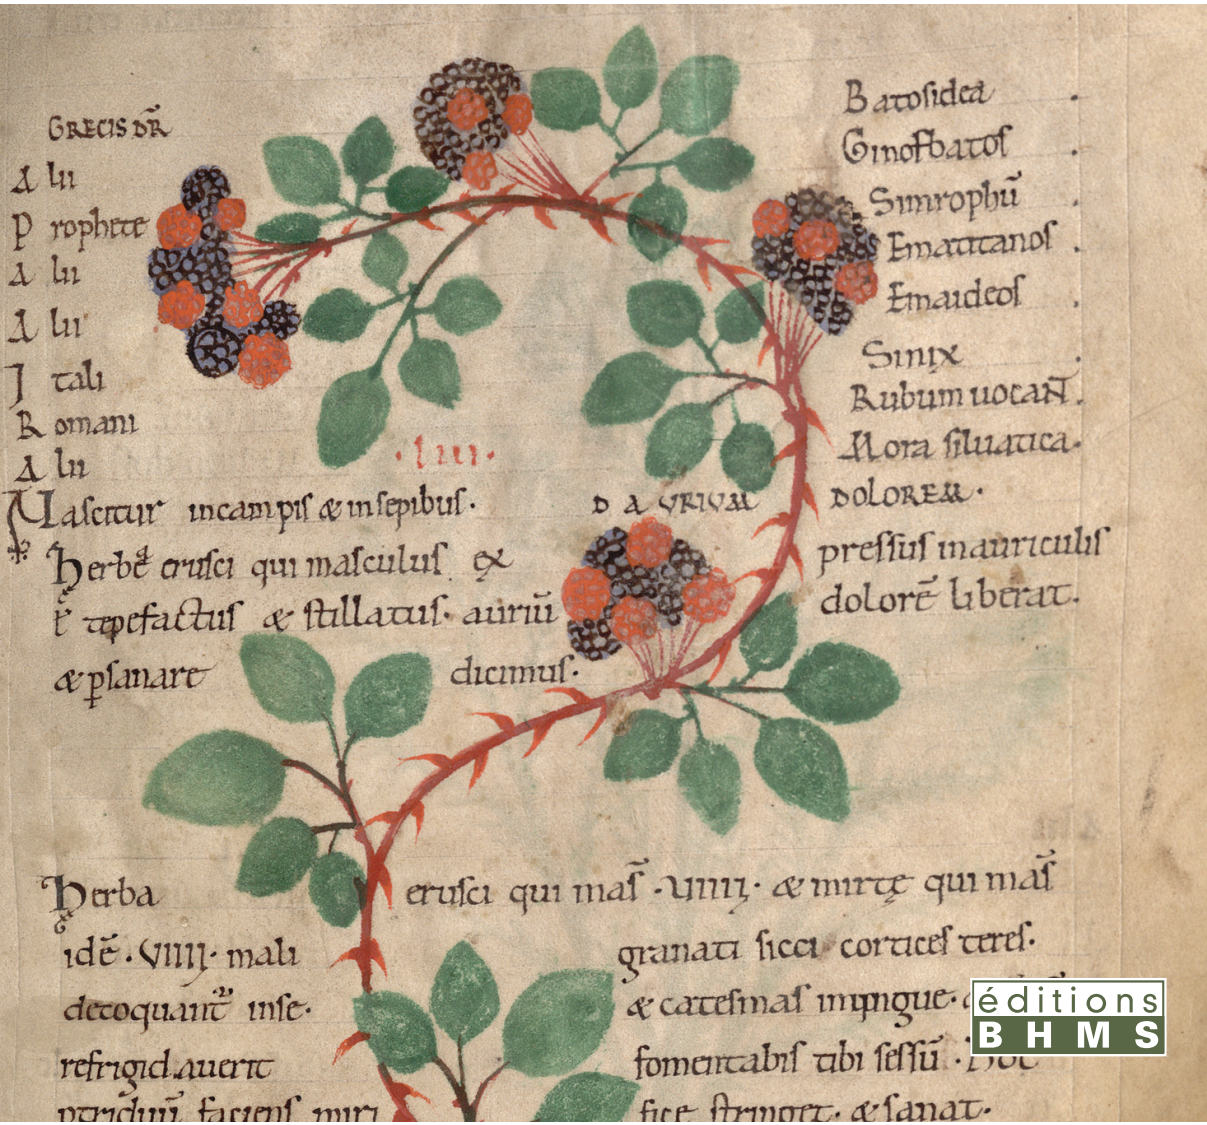 GRECIS DR̄ Batosidea.
Alii Ginosbatos.
Prophete Simrophū.
Alii Ematitanos.
Alii Emaideos.
Itali Sinix.
Romani Rubum uocant̄.
Alii Mora siluatica.
.liii.
Nascitur in campis & in sepibus.
DAURIUM DOLOREM.
herbē erusci qui masculus ex pressus in auriculis
tepefactus & stillatus. auriū dolorē liberat.
& psanare dicimus.
herba erusci qui mas̄ .VIIII. & mirtę qui mas̄
idē .VIIII. mali granati sicci cortices teres.
decoquant̄ inse. & catesmas inpingue.
refrigid auerit fomentabis tibi sessū.
faciens miri fice stringet. & sanat.
éditions
BHMS